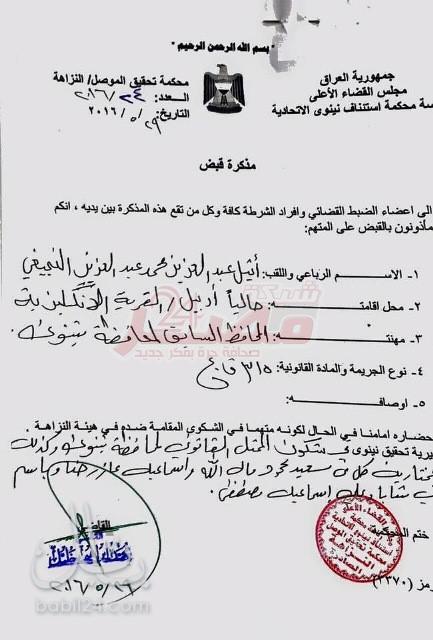 « بسم الله الرحمن الرحيم »
جمهورية العراق
مجلس القضاء الأعلى
سة محكمة استئناف نينوى الاتحادية
محكمة تحقيق الموصل/ النزاهة
العدد: ٢٤/ ٢٠١٦
التاريخ: ٢٩/ ٥/ ٢٠١٦
مذكرة قبض
الى اعضاء الضبط القضائي وافراد الشرطة كافة وكل من تقع هذه المذكرة بين يديه ، انكم
مأذونون بالقبض على المتهم:
١- الاسم الرباعي واللقب: أثيل عبد العزيز محمد عبد العزيز النجيفي
٢- محل اقامته: حالياً أربيل / القرية الانگليزية
٣- مهنته: المحافظ السابق لمحافظة نينوى .
٤- نوع الجريمة والمادة القانونية: ٣١٥
٥- اوصافه:
حضاره امامنا في الحال لكونه متهما في الشكوى المقامة ضدم في هيئة النزاهة
يرية تحقيق نينوى من الممثل القانوني لمحافظة نينوى وكذلك
كل من سعيد محمود مال الله واسماعيل
اسماعيل مصطفى .
ختم المحكمة
القاضي
٢٠١٦/٥/٢٦
رمز (٢٣٧٠)
شبكة
صحافة حرة بفكر جديد
babil24.com